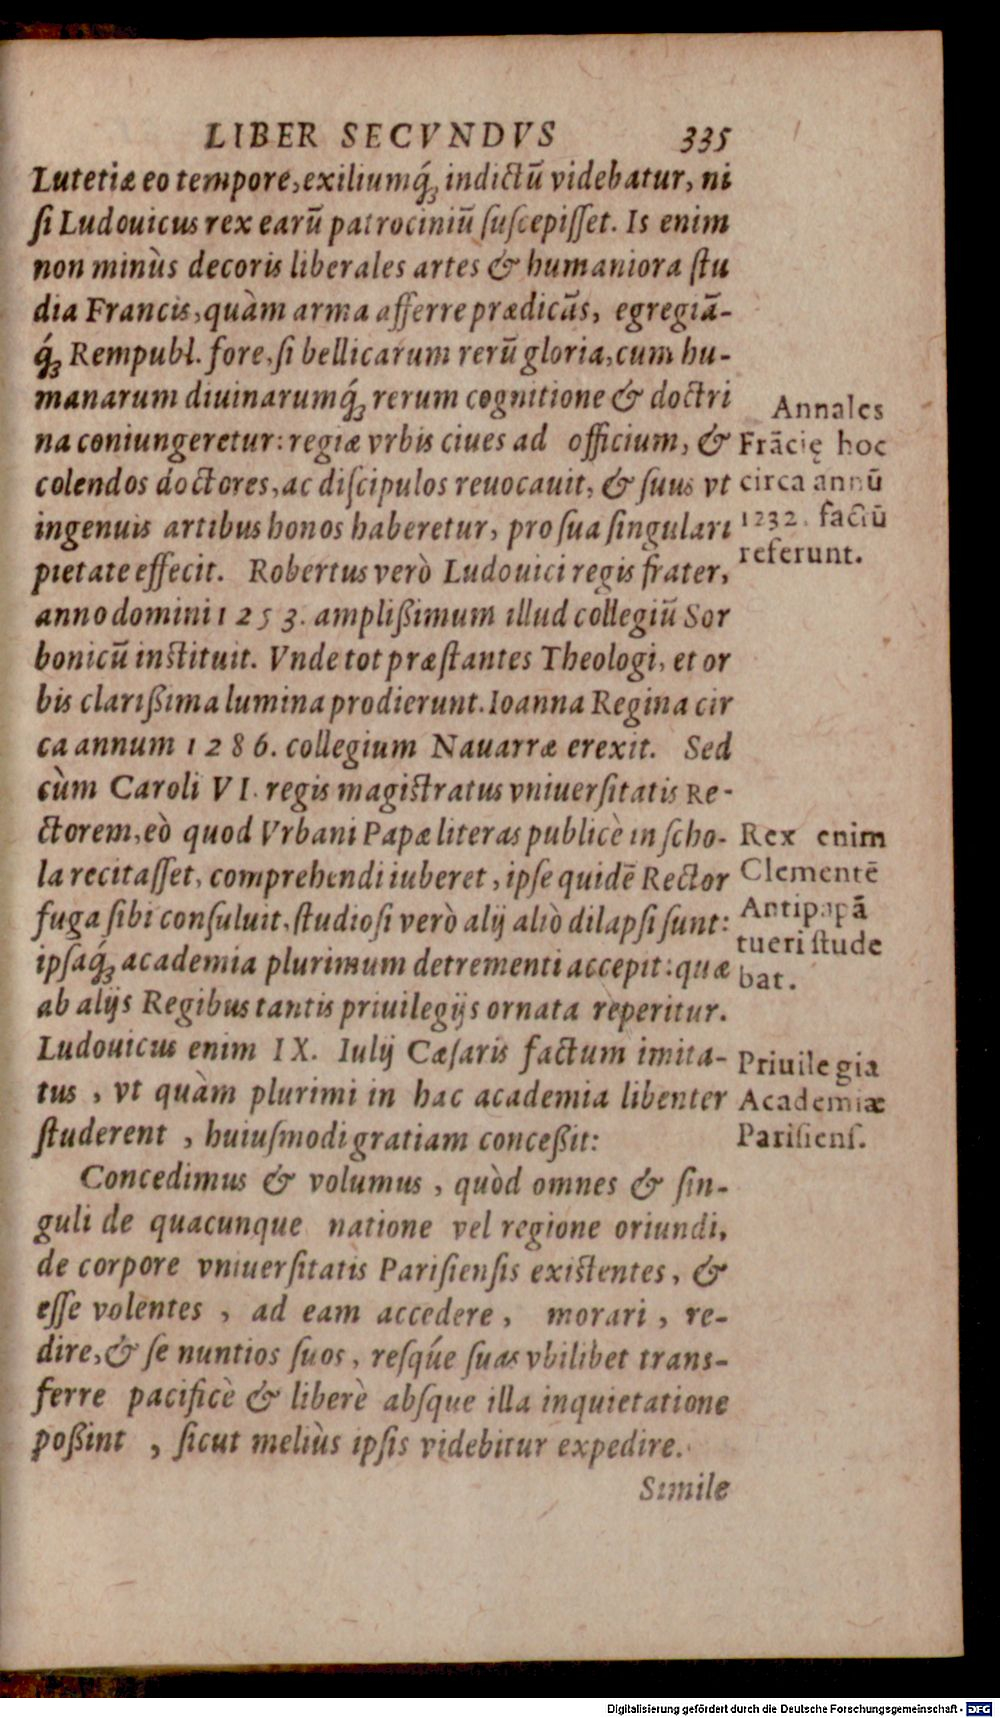 LIBER SECVNDVS 335
Lutetiæ eo tempore, exiliumq́ꝫ indictū videbatur, ni
ſi Ludouicus rex earū patrociniū ſuſcepiſſet. Is enim
non minùs decoris liberales artes & humaniora ſtu
dia Francis, quàm arma afferre prædicās, egregiā-
q́ꝫ Rempubl. fore, ſi bellicarum rerū gloria, cum hu-
manarum diuinarumq́ꝫ rerum cognitione & doctri
na coniungeretur: regiæ vrbis ciues ad officium, &
colendos doctores, ac diſcipulos reuocauit, & ſuus vt
ingenuis artibus honos haberetur, pro ſua ſingulari
pietate effecit. Robertus verò Ludouici regis frater,
anno domini 1253. ampliſsimum illud collegiū Sor
bonicū inſtituit. Vnde tot præſtantes Theologi, et or
bis clariſsima lumina prodierunt. Ioanna Regina cir
ca annum 1286. collegium Nauarræ erexit. Sed
cùm Caroli VI. regis magiſtratus vniuerſitatis Re-
ctorem, eò quod Vrbani Papæ literas publicè in ſcho-
la recitaſſet, comprehendi iuberet, ipſe quidē Rector
fuga ſibi conſuluit, ſtudioſi verò alij aliò dilapſi ſunt:
ipſaq́ꝫ academia plurimum detrementi accepit: quæ
ab alijs Regibus tantis priuilegijs ornata reperitur.
Ludouicus enim IX. Iulij Cæſaris factum imita-
tus, vt quàm plurimi in hac academia libenter
ſtuderent, huiuſmodi gratiam conceßit:
Concedimus & volumus, quòd omnes & ſin-
guli de quacunque natione vel regione oriundi,
de corpore vniuerſitatis Pariſienſis exiſtentes, &
eſſe volentes, ad eam accedere, morari, re-
dire, & ſe nuntios ſuos, reſqúe ſuas vbilibet trans-
ferre pacificè & liberè abſque illa inquietatione
poßint, ſicut meliùs ipſis videbitur expedire.
Simile
Annales
Frācię hoc
circa annū
1232. factū
referunt.
Rex enim
Clementē
Antipapā
tueri ſtude
bat.
Priuilegia
Academiæ
Pariſienſ.
Digitalisierung gefördert durch die Deutsche Forschungsgemeinschaft - DFG